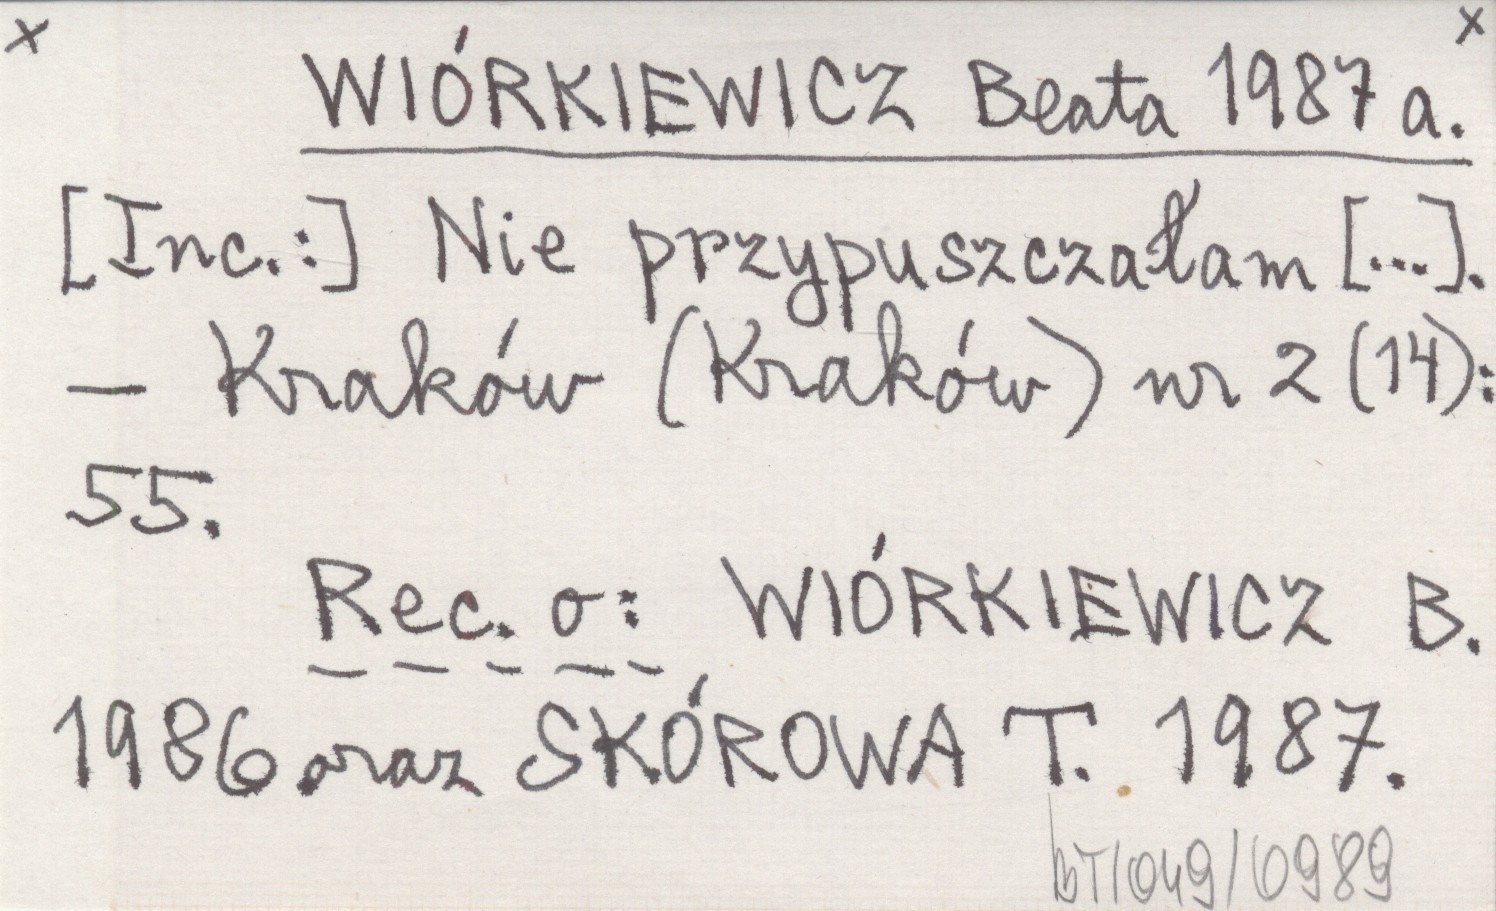 x x
WIÓRKIEWICZ Beata 1987 a.
[Inc.:] Nie przypuszczałam [...].
— Kraków (Kraków) nr 2 (14):
55.
Rec. o: WIÓRKIEWICZ B.
1986 oraz SKÓROWA T. 1987.
bT/049/0989